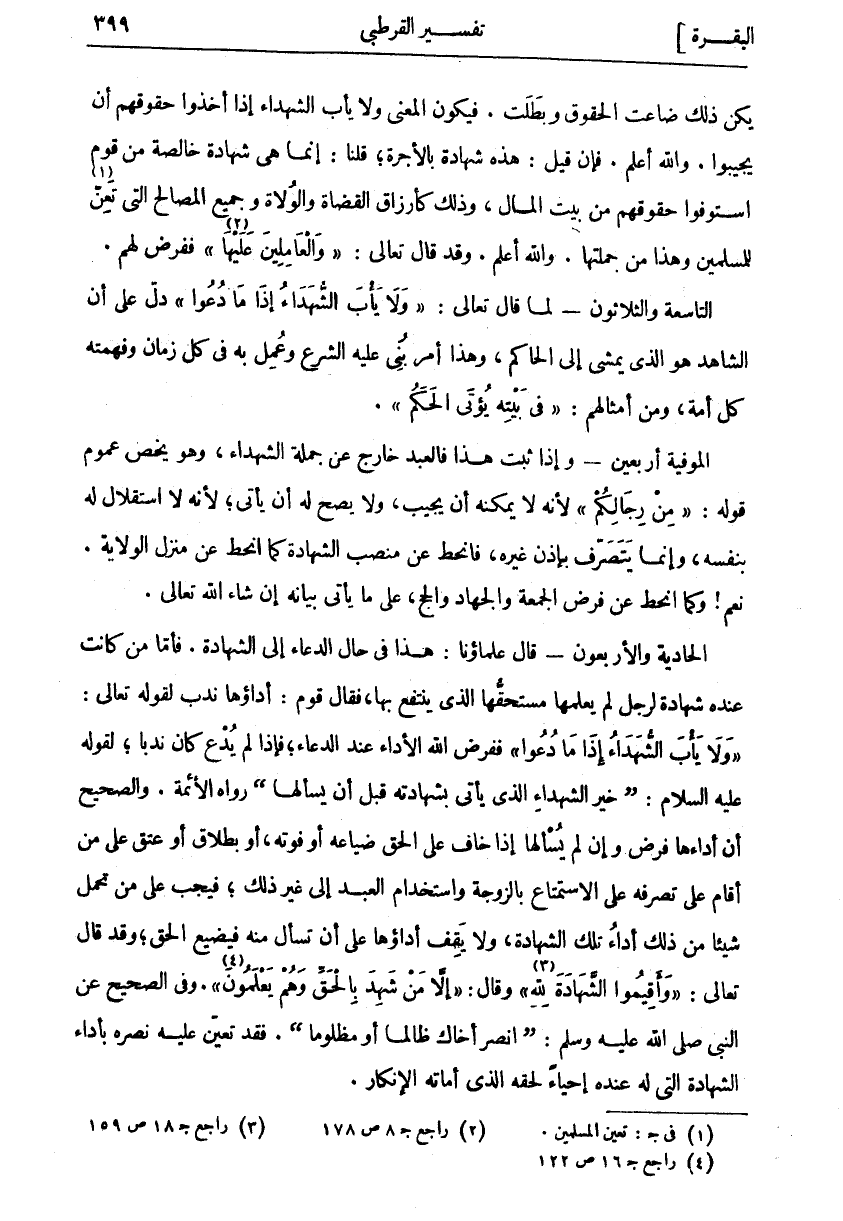 البقرة ] تفسير القرطبى ٣٩٩
يكن ذلك ضاعت الحقوق وبَطَلت . فيكون المعنى ولا يأب الشهداء إذا أخذوا حقوقهم أن
يجيبوا . والله أعلم . فإن قيل : هذه شهادة بالأجرة؛ قلنا : إنما هى شهادة خالصة من قوم
استوفوا حقوقهم من بيت المال ، وذلك كأرزاق القضاة والوُلاة وجميع المصالح التى تَعِنّ (١)
للمسلمين وهذا من جملتها . والله أعلم . وقد قال تعالى : « وَالْعَامِلِينَ عَلَيْهَا (٢) » ففرض لهم .
التاسعة والثلاثون — لما قال تعالى : « وَلَا يَأْبَ الشُّهَدَاءُ إِذَا مَا دُعُوا » دلّ على أن
الشاهد هو الذى يمشى إلى الحاكم ، وهذا أمر بُنِى عليه الشرع وعُمِل به فى كل زمان وفهمته
كل أمة، ومن أمثالهم : « فى بَيْتِه يُؤتَى الحَكَمُ » .
الموفية أربعين — وإذا ثبت هذا فالعبد خارج عن جملة الشهداء ، وهو يخص عموم
قوله : « مِنْ رِجَالِكُمْ » لأنه لا يمكنه أن يجيب، ولا يصح له أن يأتى؛ لأنه لا استقلال له
بنفسه، وإنما يَتَصَرّف بإذن غيره، فانحط عن منصب الشهادة كما انحط عن منزل الولاية .
نعم ! وكما انحط عن فرض الجمعة والجهاد والحج، على ما يأتى بيانه إن شاء الله تعالى .
الحادية والأربعون — قال علماؤنا : هذا فى حال الدعاء إلى الشهادة . فأمّا من كانت
عنده شهادة لرجل لم يعلمها مستحقُّها الذى ينتفع بها، فقال قوم : أداؤها ندب لقوله تعالى :
«وَلَا يَأْبَ الشُّهَدَاءُ إِذَا مَا دُعُوا» ففرض الله الأداء عند الدعاء؛ فإذا لم يُدْع كان ندبا ؛ لقوله
عليه السلام : ” خير الشهداءِ الذى يأتى بشهادته قبل أن يسألها “ رواه الأئمة . والصحيح
أن أداءها فرض وإن لم يُسْألها إذا خاف على الحق ضياعه أو فوته، أو بطلاق أو عتق على من
أقام على تصرفه على الاستمتاع بالزوجة واستخدام العبد إلى غير ذلك ؛ فيجب على من تحمل
شيئا من ذلك أداءُ تلك الشهادة، ولا يَقِف أداؤها على أن تسأل منه فيضيع الحق؛ وقد قال
تعالى : «وَأَقِيمُوا الشَّهَادَةَ لِلّهِ (٣)» وقال: «إِلَّا مَنْ شَهِدَ بِالْحَقِّ وَهُمْ يَعْلَمُونَ (٤)». وفى الصحيح عن
النبى صلى الله عليه وسلم : ” انصر أخاك ظالما أو مظلوما “ . فقد تعيّن عليه نصره بأداء
الشهادة التى له عنده إحياءً لحقه الذى أماته الإنكار .
(١) فى جـ : تعين المسلمين . (٢) راجع جـ ٨ ص ١٧٨ (٣) راجع جـ ١٨ ص ١٥٩
(٤) راجع جـ ١٦ ص ١٢٢